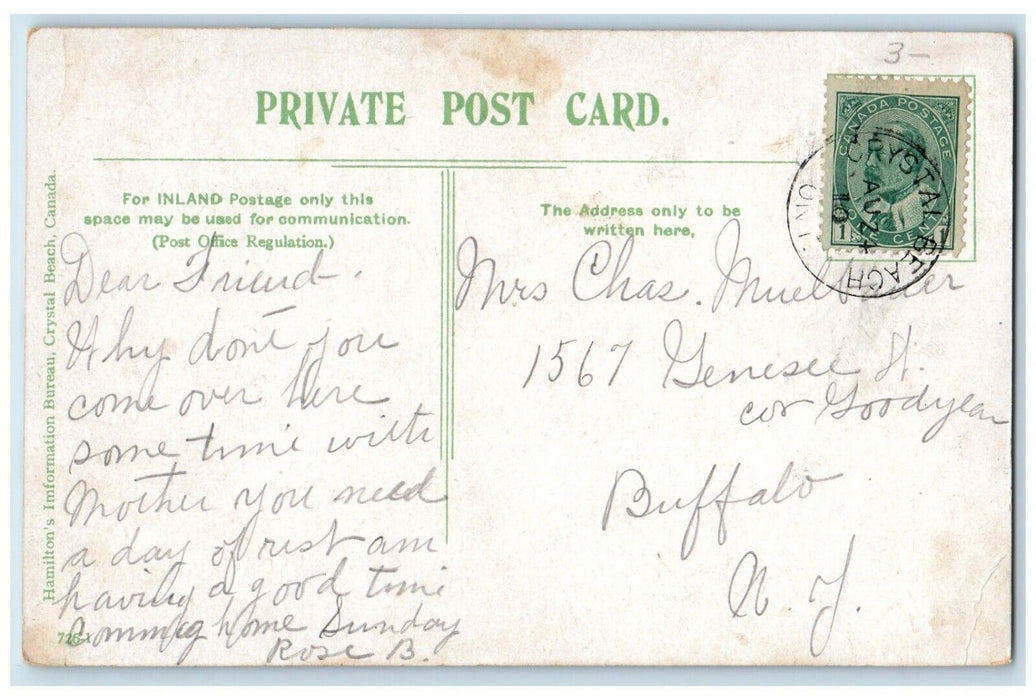 3-
PRIVATE POST CARD.
CANADA POSTAGE
1 CENT 1
CRYSTAL BEACH
AU 24
ONT.
For INLAND Postage only this
space may be used for communication.
(Post Office Regulation.)
The Address only to be
written here,
Hamilton's Imformation Bureau, Crystal Beach, Canada.
Dear Friend-
Why dont you
come over here
some time with
Mother you need
a day of rest am
having a good time
Comming home Sunday
Rose B.
Mrs Chas.
1567 Genesee St.
cor Goodyear
Buffalo
N. Y.